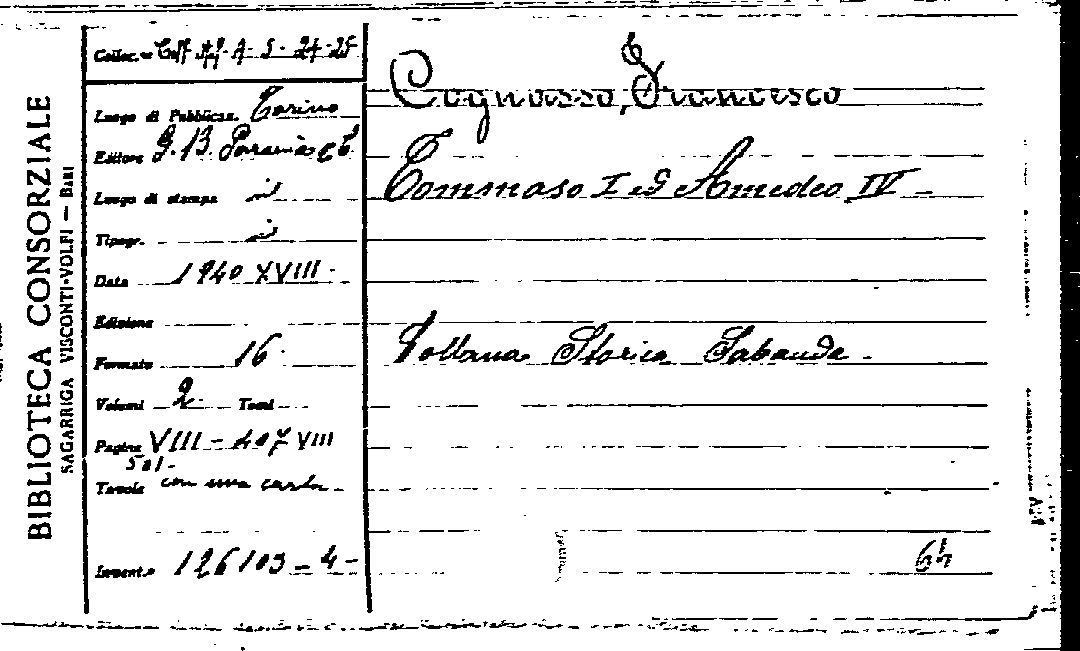 BIBLIOTECA CONSORZIALE
SAGARRIGA VISCONTI-VOLPI — BARI
Colloc.ne A- 5- 24-25
Luogo di Pubblicaz. Torino
Editore G. B. Paravia e C.
Luogo di stampa id
Tipogr. id
Data 1940 XVIII
Edizione
Formato 16
Volumi 2 Tomi
Pagine VIII - 407 VIII
501-
Tavole con una carta
Invent.o 126103 - 4 -
Cognasso, Francesco
Tommaso I ed Amedeo IV -
Collana Storica Sabauda -
64